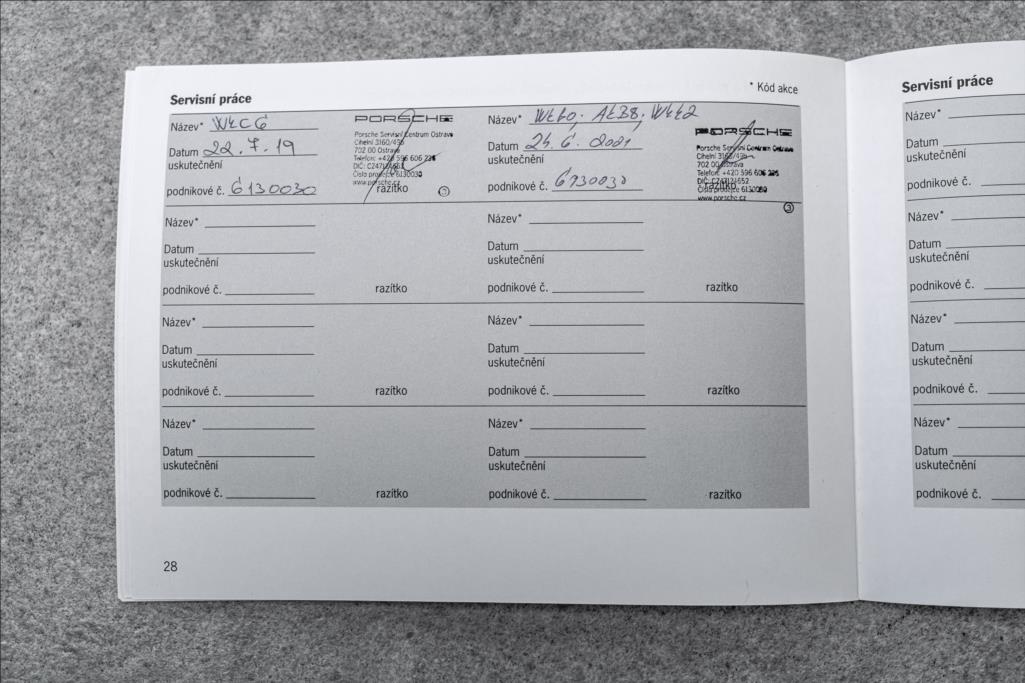 Servisní práce
* Kód akce
Název* WLC6
Datum 22.7.19
uskutečnění
podnikové č. 6130030
PORSCHE
Porsche Servisní Centrum Ostrava
Cihelní 3160/49b
702 00 Ostrava
Telefon: +420 596 606
DIČ:
Číslo prodejce 6130030
www.porsche.cz
razítko
3
Název*
Datum 24.6.2021
uskutečnění
podnikové č. 6130030
PORSCHE
Porsche Servisní Centrum Ostrava
Cihelní 3160/49b
702 00 Ostrava
Telefon: +420 596 606
DIČ:
Číslo prodejce 6130030
www.porsche.cz
razítko
3
Název*
Datum
uskutečnění
podnikové č.
razítko
Název*
Datum
uskutečnění
podnikové č.
razítko
Název*
Datum
uskutečnění
podnikové č.
razítko
Název*
Datum
uskutečnění
podnikové č.
razítko
Název*
Datum
uskutečnění
podnikové č.
razítko
Název*
Datum
uskutečnění
podnikové č.
razítko
28
Servisní práce
Název*
Datum
uskutečnění
podnikové č.
Název*
Datum
uskutečnění
podnikové č.
Název*
Datum
uskutečnění
podnikové č.
Název*
Datum
uskutečnění
podnikové č.